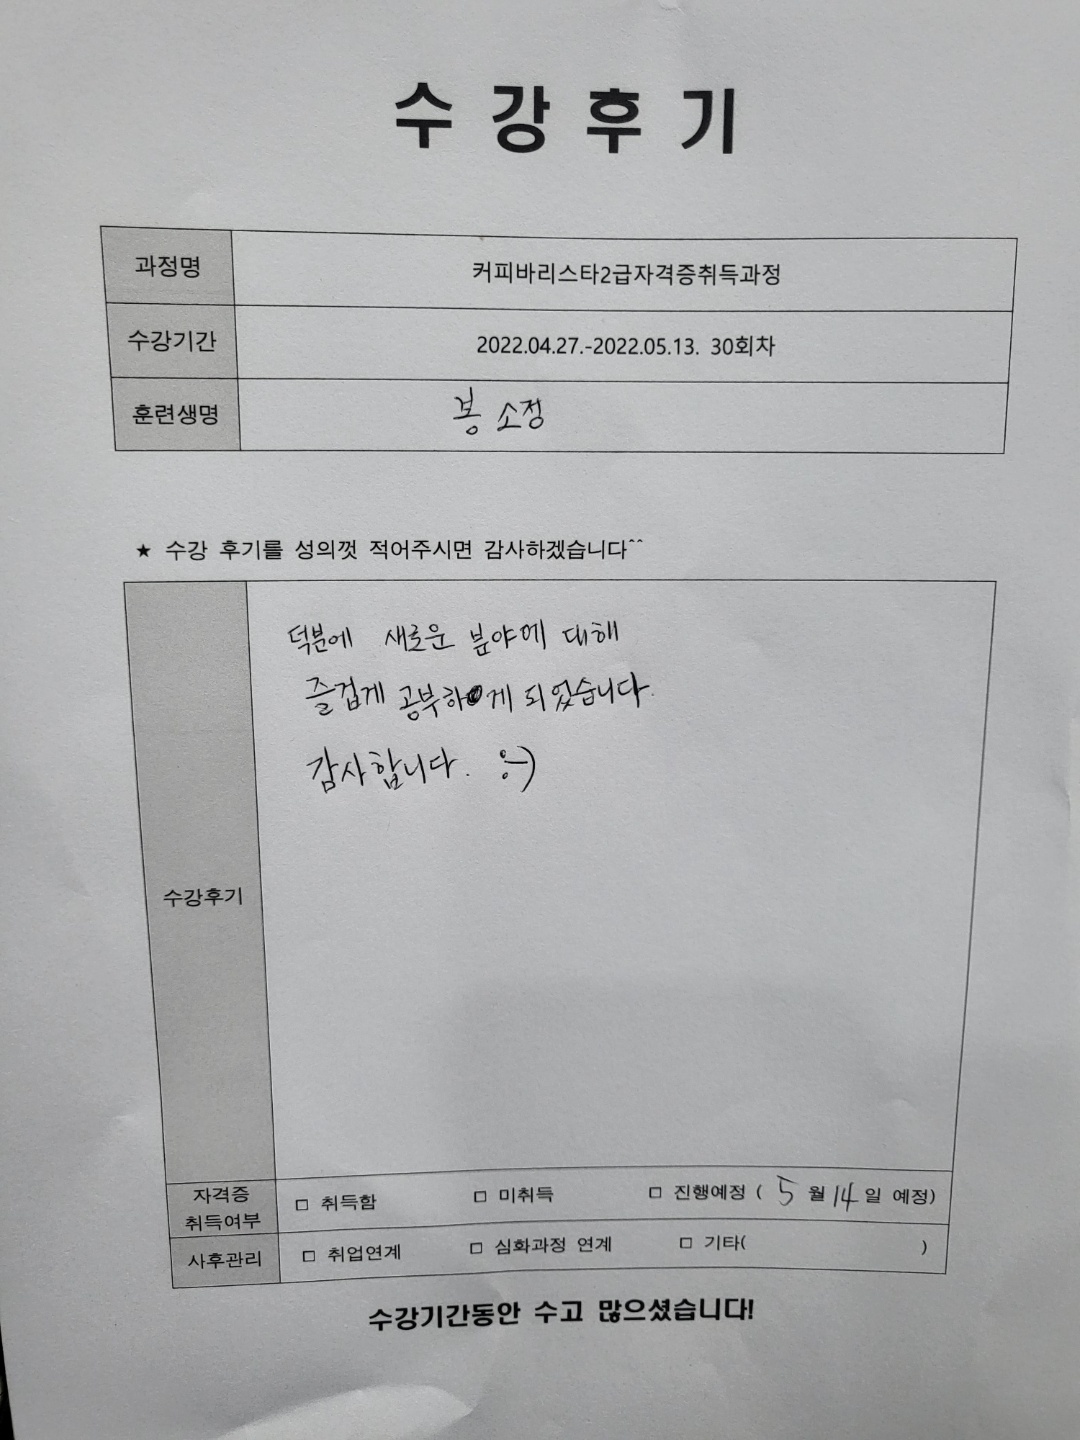 수강후기
과정명 커피바리스타2급자격증취득과정
수강기간 2022.04.27.-2022.05.13. 30회차
훈련생명 봉소정
★ 수강 후기를 성의껏 적어주시면 감사하겠습니다^^
덕분에 새로운 분야에 대해
즐겁게 공부하게 되었습니다.
감사합니다. :-)
수강후기
자격증
취득여부 □ 취득함 □ 미취득 □ 진행예정 ( 5 월 14 일 예정)
사후관리 □ 취업연계 □ 심화과정 연계 □ 기타( )
수강기간동안 수고 많으셨습니다!